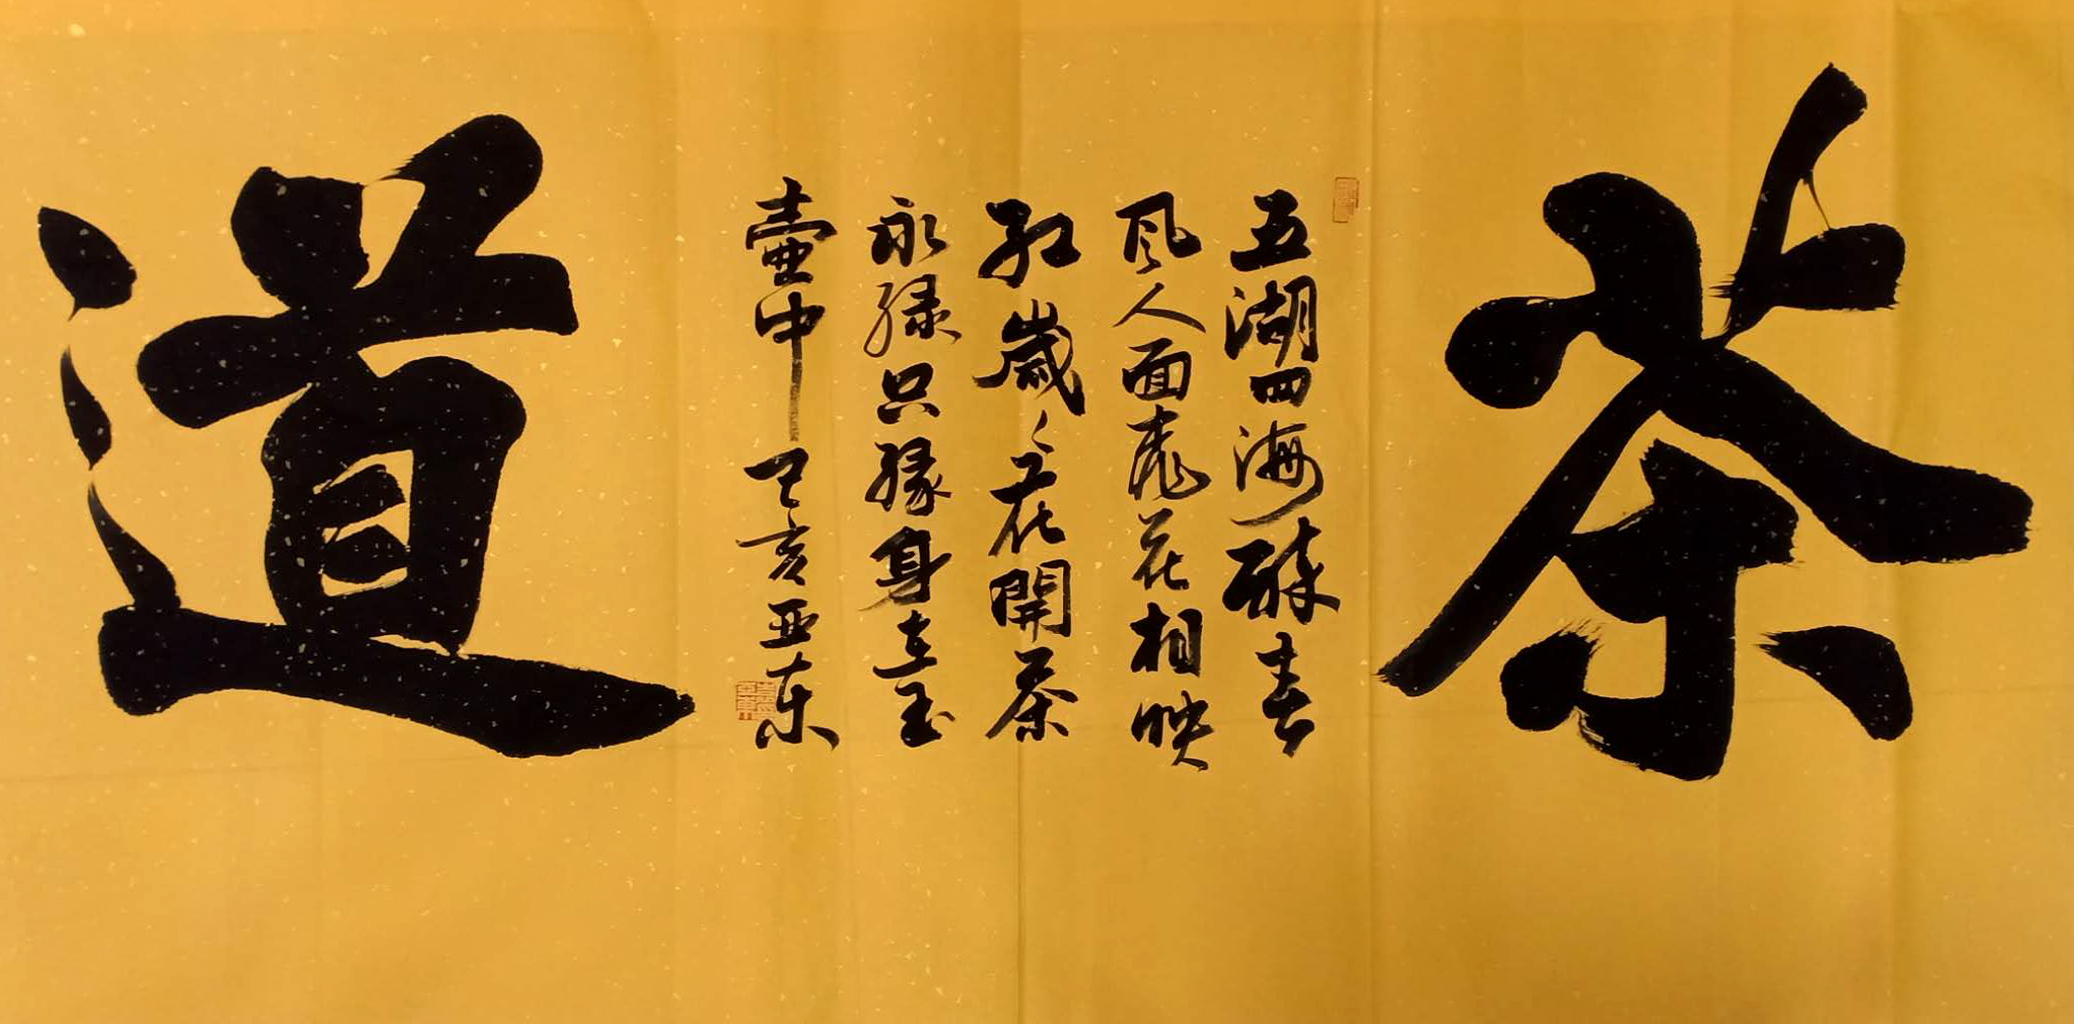 茶
五湖四海醉春
风人面桃花相映
红歲々花開茶
永绿只缘身在玉
壶中己亥亚东
道